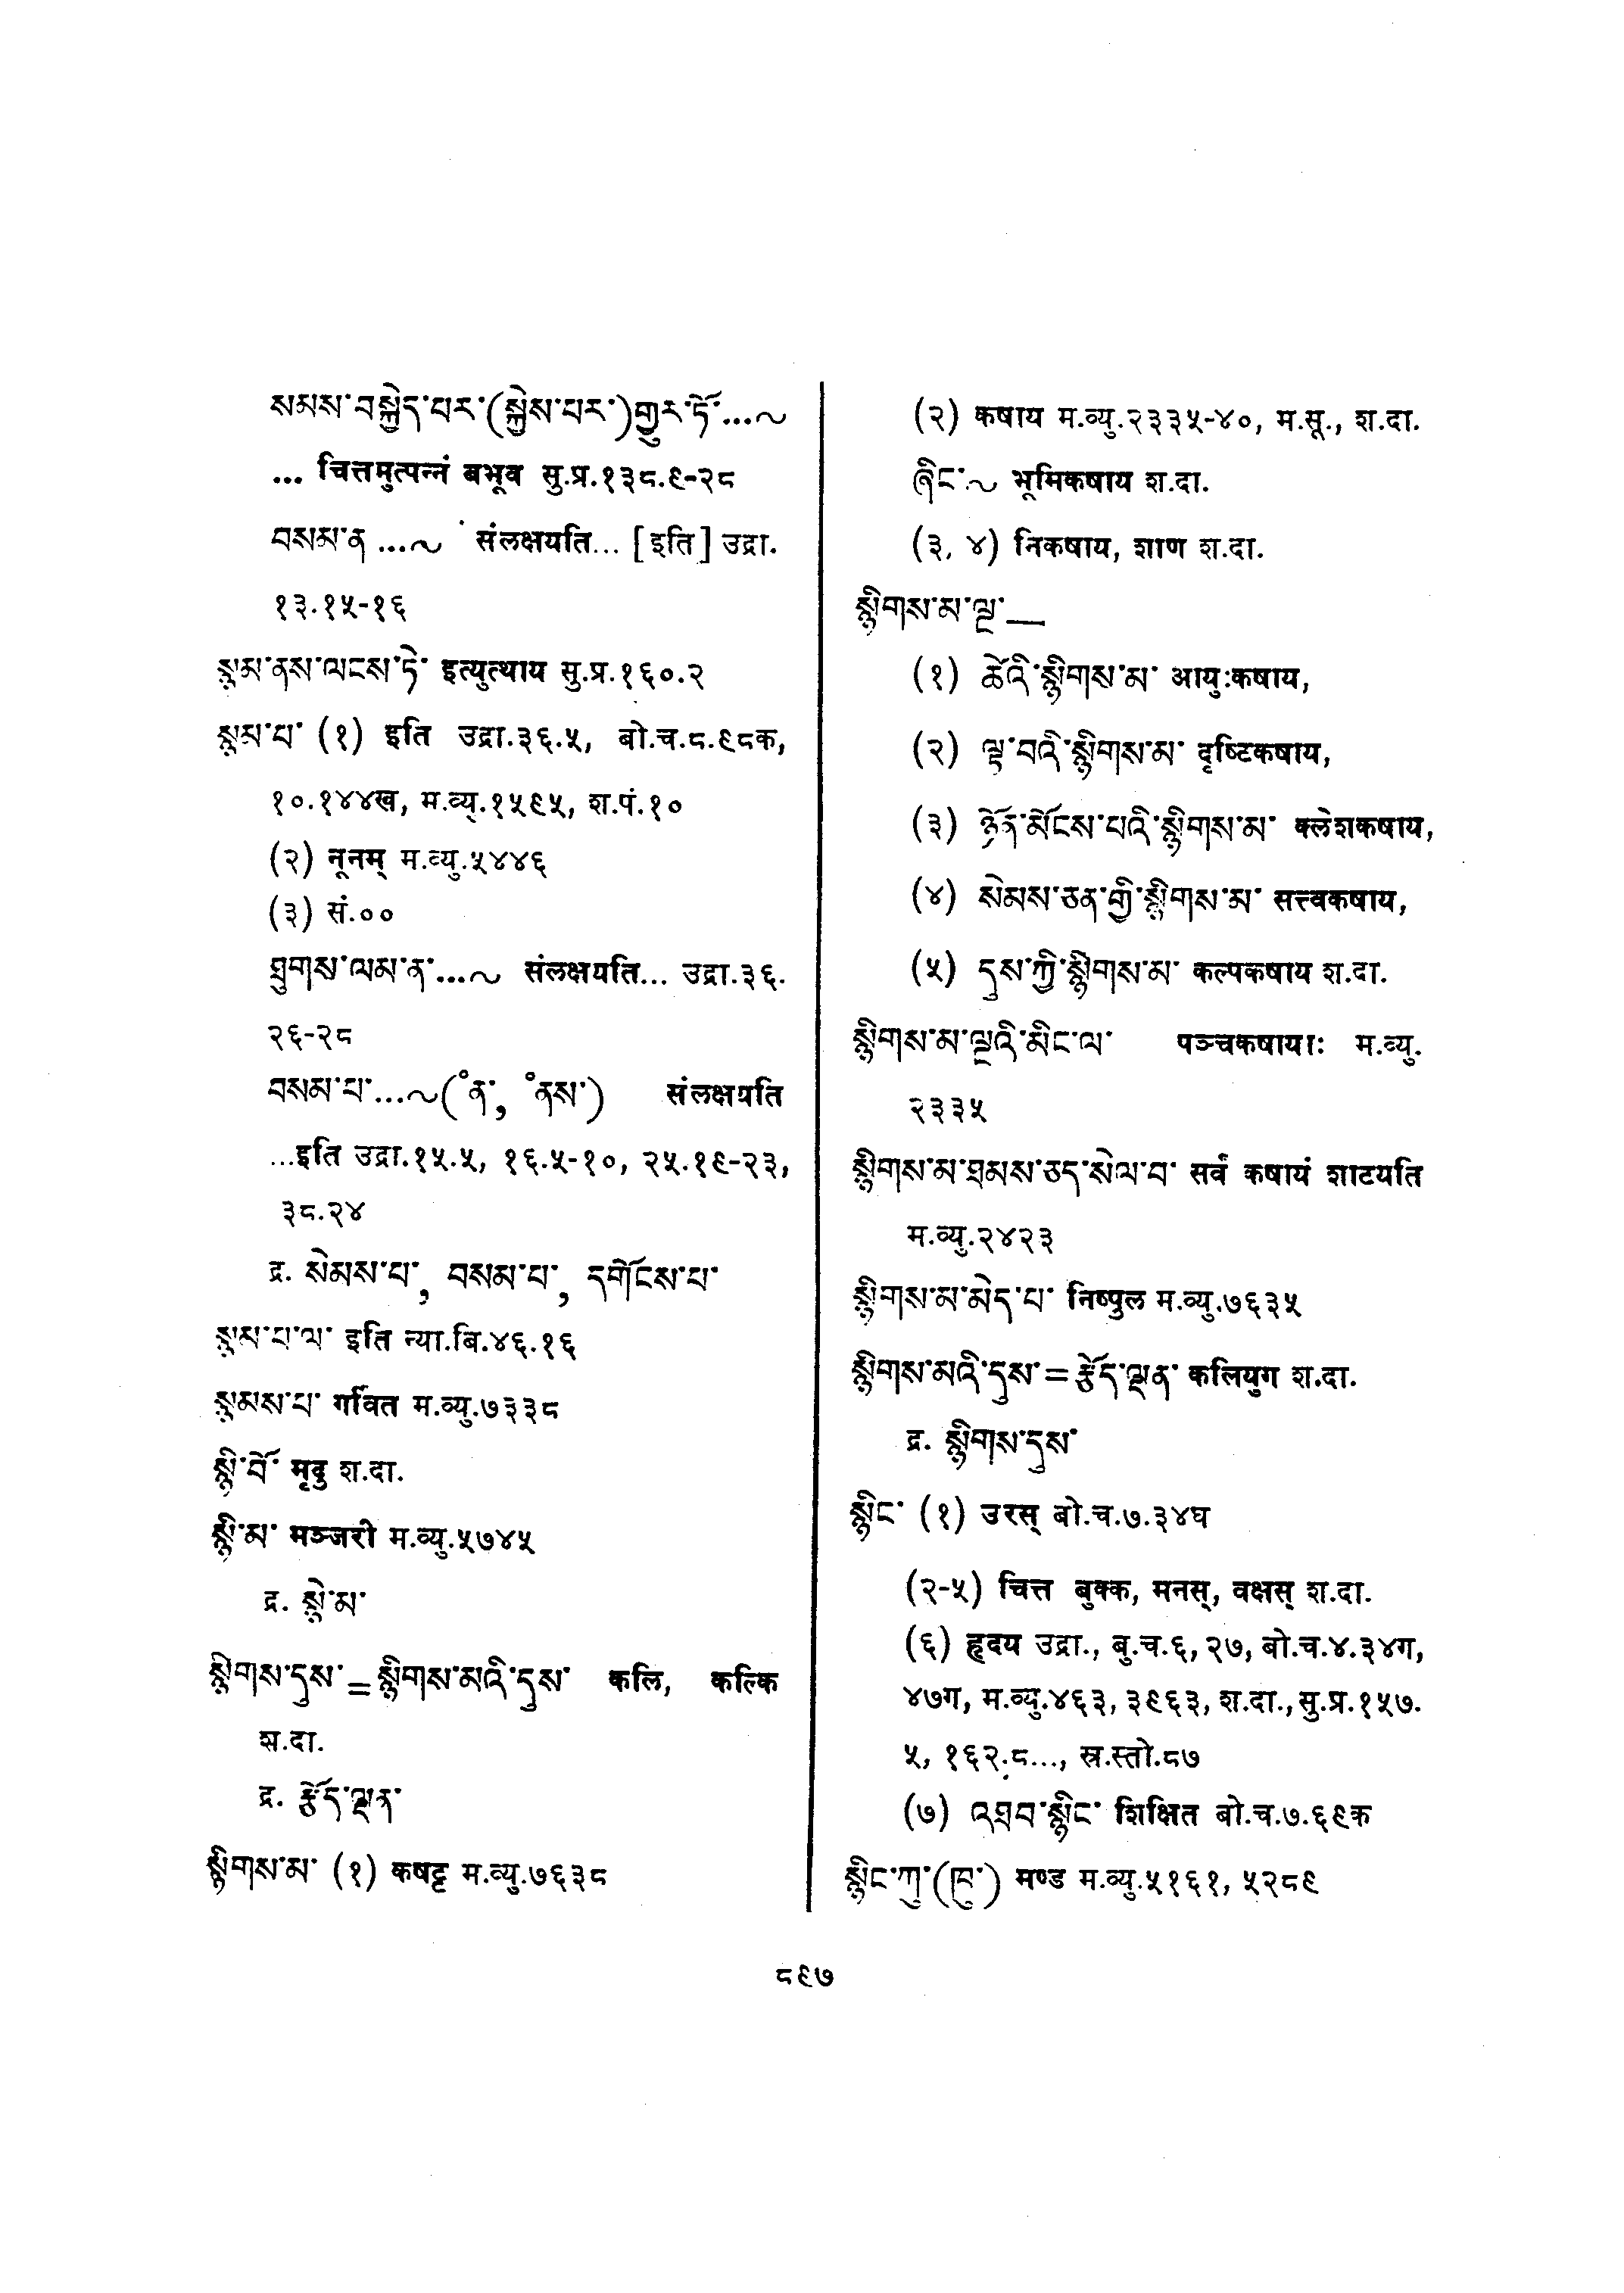 སམས་བསྐྱེད་པར་(སྐྱེས་པར་)གྱུར་ཏོ་...~
... चित्तमुत्पन्नं बभूव सु.प्र.१३८.९-२८
བསམ་ན ...~ संलक्षयति... [इति] उद्रा.
१३.१५-१६
སྙམ་ནས་ལངས་ཏེ་ इत्युत्थाय सु.प्र.१६०.२
སྙམ་པ་ (१) इति उद्रा.३६.५, बो.च.८.९८क,
१०.१४४ख, म.व्यु.१५९५, श.पं.१०
(२) नूनम् म.व्यु.५४४६
(३) सं.००
ཐུགས་ལམ་ན་...~ संलक्षयति... उद्रा.३६.
२६-२८
བསམ་པ་...~(˚ན་, ˚ནས་) संलक्षयति
...इति उद्रा.१५.५, १६.५-१०, २५.१९-२३,
३८.२४
द्र. སེམས་པ་, བསམ་པ་, དགོངས་པ་
སྙམ་པ་ལ་ इति न्या.बि.४६.१६
སྙམས་པ་ गर्वित म.व्यु.७३३८
སྙི་བོ་ मृदु श.दा.
སྙི་མ་ मञ्जरी म.व्यु.५७४५
द्र. སྙེ་མ་
སྙིགས་དུས་=སྙིགས་མའི་དུས་ कलि, कल्कि
श.दा.
द्र. རྩོད་ལྡན་
སྙིགས་མ་ (१) कषट्ट म.व्यु.७६३८
(२) कषाय म.व्यु.२३३५-४०, म.सू., श.दा.
ཞིང་~ भूमिकषाय श.दा.
(३, ४) निकषाय, शाण श.दा.
སྙིགས་མ་ལྔ་—
(१) ཚེའི་སྙིགས་མ་ आयुःकषाय,
(२) ལྟ་བའི་སྙིགས་མ་ दृष्टिकषाय,
(३) ཉོན་མོངས་པའི་སྙིགས་མ་ क्लेशकषाय,
(४) སེམས་ཅན་གྱི་སྙིགས་མ་ सत्त्वकषाय,
(५) དུས་ཀྱི་སྙིགས་མ་ कल्पकषाय श.दा.
སྙིགས་མ་ལྔའི་མིང་ལ་ पञ्चकषायाः म.व्यु.
२३३५
སྙིགས་མ་ཐམས་ཅད་སེལ་བ་ सर्वं कषायं शाटयति
म.व्यु.२४२३
སྙིགས་མ་མེད་པ་ निष्पुल म.व्यु.७६३५
སྙིགས་མའི་དུས་=རྩོད་ལྡན་ कलियुग श.दा.
द्र. སྙིགས་དུས་
སྙིང་ (१) उरस् बो.च.७.३४घ
(२-५) चित्त बुक्क, मनस्, वक्षस् श.दा.
(६) हृदय उद्रा., बु.च.६, २७, बो.च.४.३४ग,
४७ग, म.व्यु.४६३, ३९६३, श.दा.,सु.प्र.१५७.
५, १६२.८..., स्र.स्तो.८७
(७) འཐབ་སྙིང་ शिक्षित बो.च.७.६९क
སྙིང་ཀུ་(ཁུ་) मण्ड म.व्यु.५१६१, ५२८९
८९७